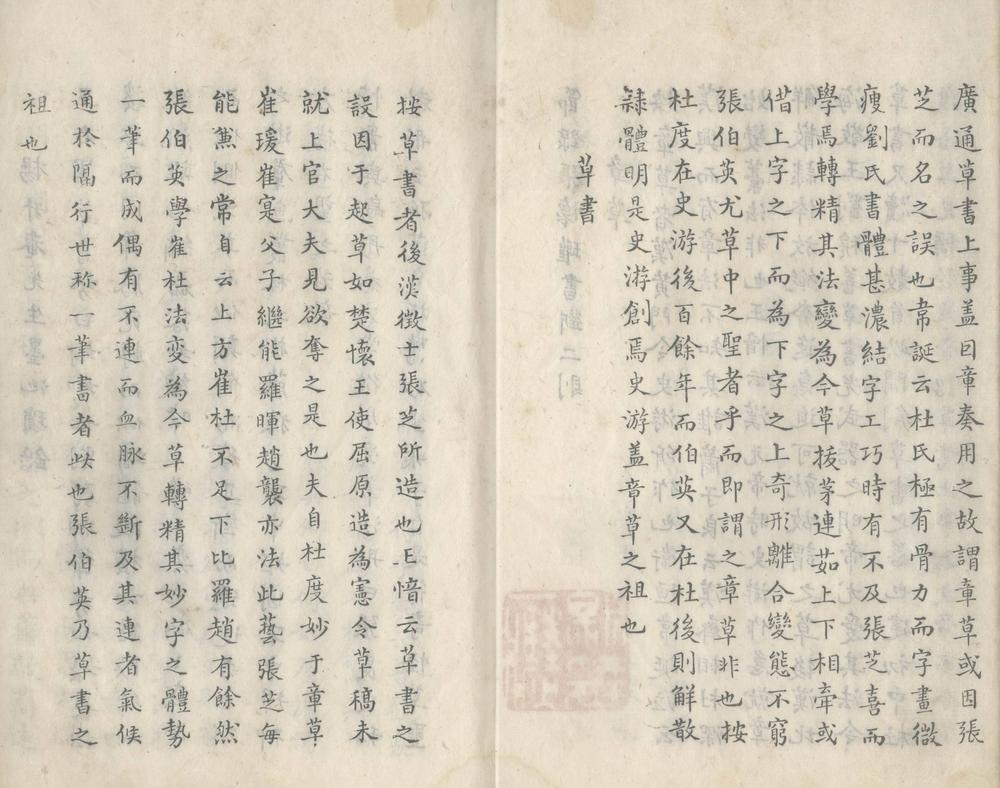 廣通草書上事盖曰章奏用之故謂章草或因張
芝而名之誤也韋誕云杜氏極有骨力而字畫微
瘦劉氏書體甚濃結字工巧時有不及張芝喜而
學焉轉精其法變為今草拔茅連茹上下相牽或
借上字之下而為下字之上奇形離合變態不窮
張伯英尤草中之聖者乎而即謂之章草非也按
杜度在史游後百餘年而伯英又在杜後則解散
隸體明是史游創焉史游盖章草之祖也
草書
按草書者後漢徴士張芝所造也王愔云草書之
設因于起草如楚懷王使屈原造為憲令草稿未
就上官大夫見欲奪之是也夫自杜度妙于章草
崔瑗崔寔父子繼能羅暉趙襲亦法此藝張芝每
能兼之常自云上方崔杜不足下比羅趙有餘然
張伯英學崔杜法変為今草轉精其妙字之體勢
一筆而成偶有不連而血脉不斷及其連者氣候
通於隔行世称一筆書者此也張伯英乃草書之
祖也